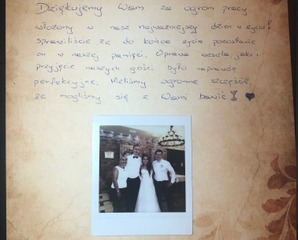 Dziękujemy Wam za ogrom pracy
włożony w nasz najważniejszy dzień w życiu!
Sprawiliście że do końca życia pozostanie
on w naszej pamięci. Oprawa wesela jak i
przyjęcie naszych gości było naprawdę
perfekcyjne. Mieliśmy ogromne szczęście,
że mogliśmy się z Wami bawić